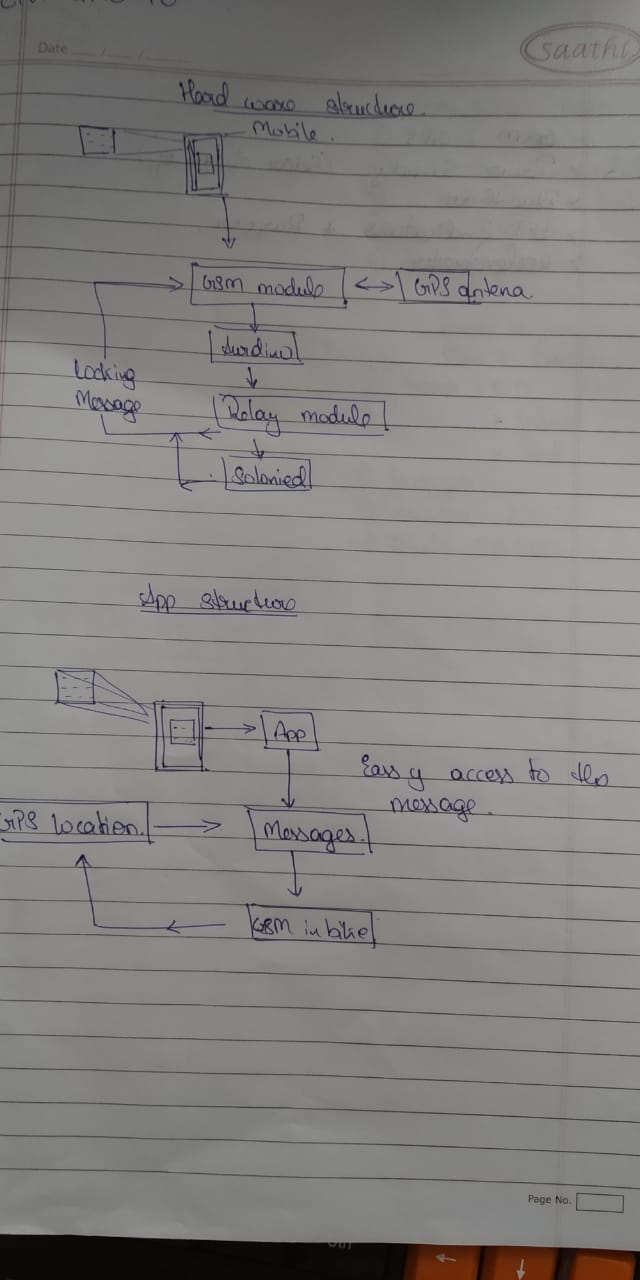 Date
saathi
Hard ware structure
Mobile.
GSM module
GPS antena.
Aurdino
Locking
Message
Relay module
Solonied
App structure
App
Eassy access to the
message.
GPS location.
Messages.
GSM in bike
Page No.